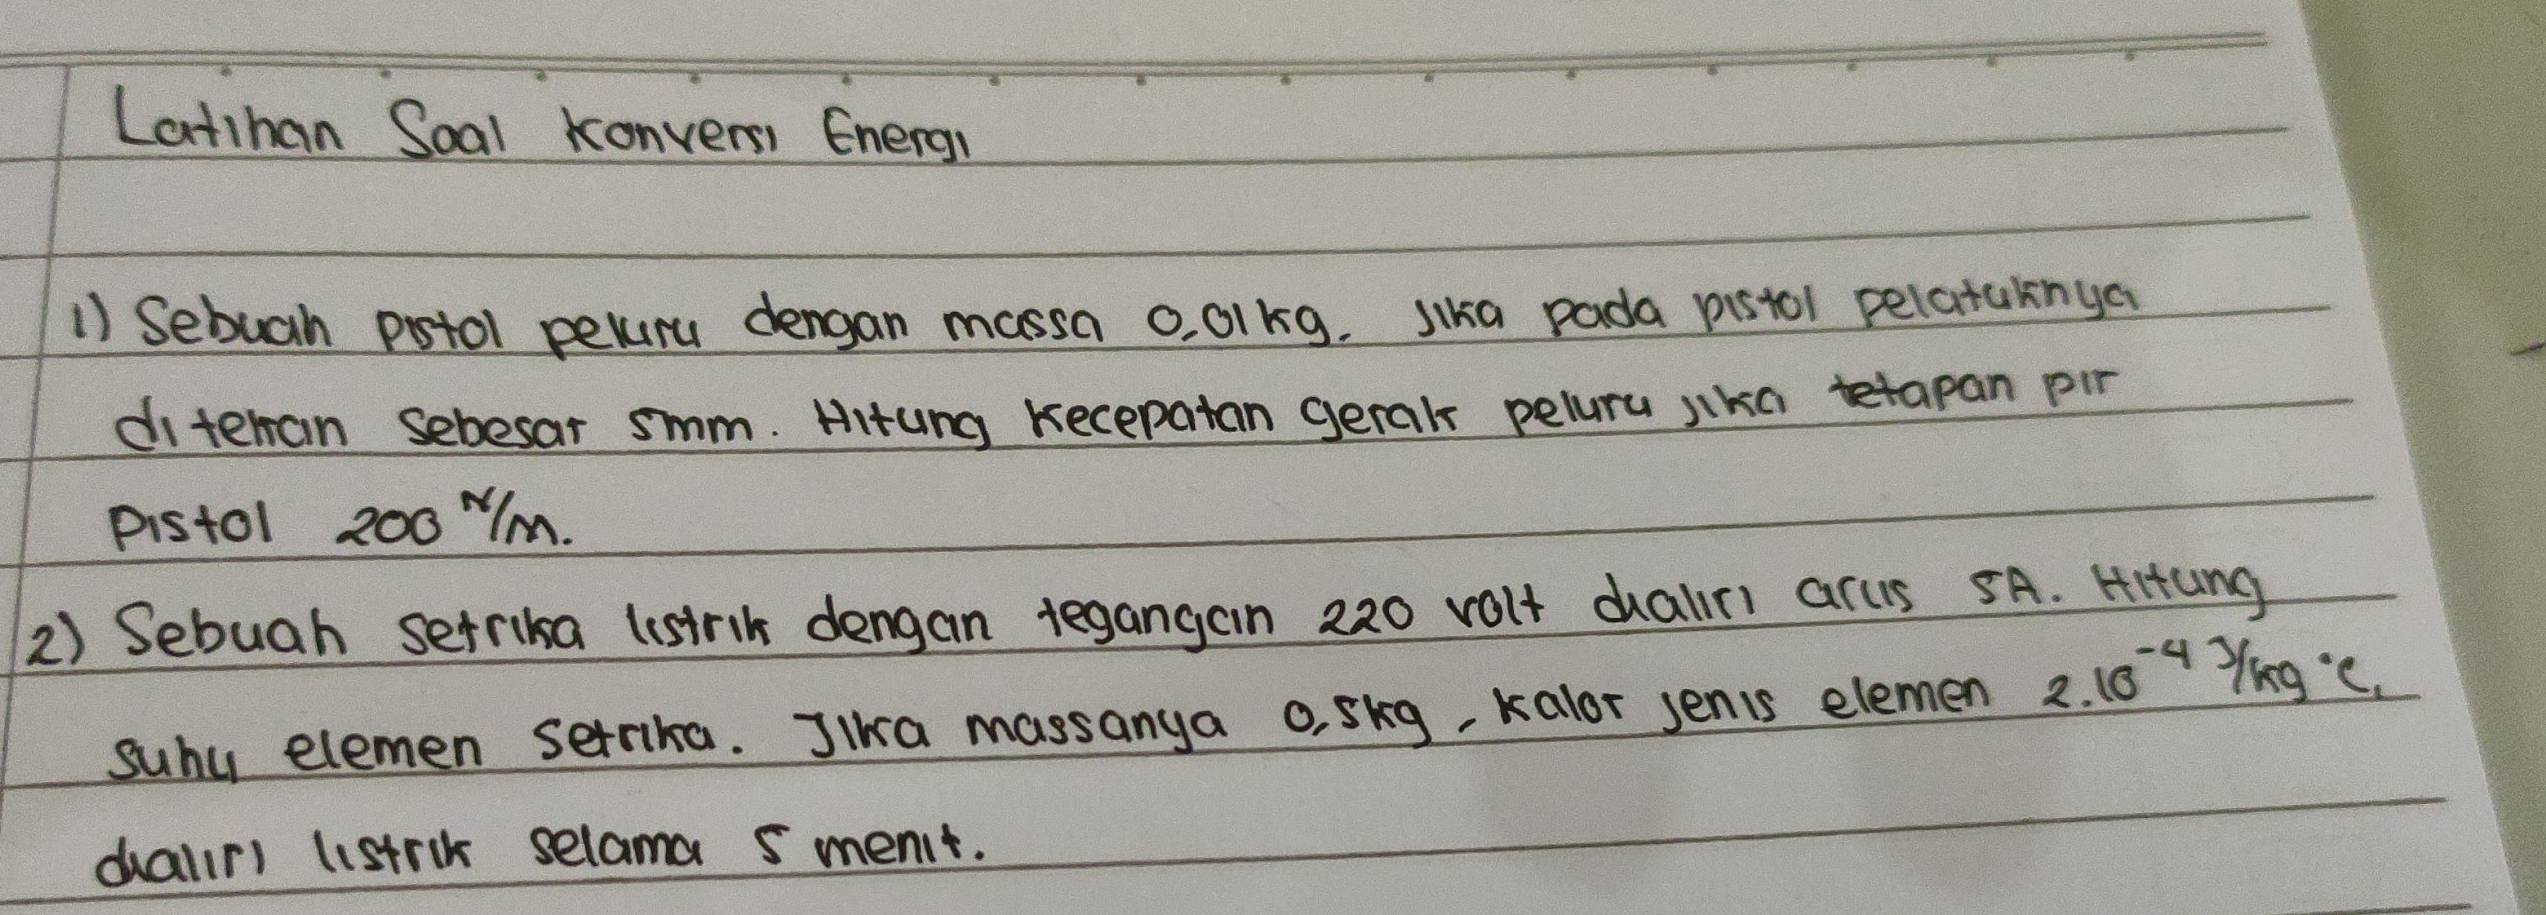 Latihan Soal Konversi Energi
1) Sebuah pistol peluru dengan massa 0,01 kg. Jika pada pistol pelatuknya
ditekan sebesar 5mm. Hitung kecepatan gerak peluru jika tetapan pir
pistol 200 N/m.
2) Sebuah setrika listrik dengan tegangan 220 volt dialiri arus 5A. Hitung
suhu elemen setrika. Jika massanya 0,5kg, kalor jenis elemen 2.10⁻⁴ J/kg °C,
dialiri listrik selama 5 menit.